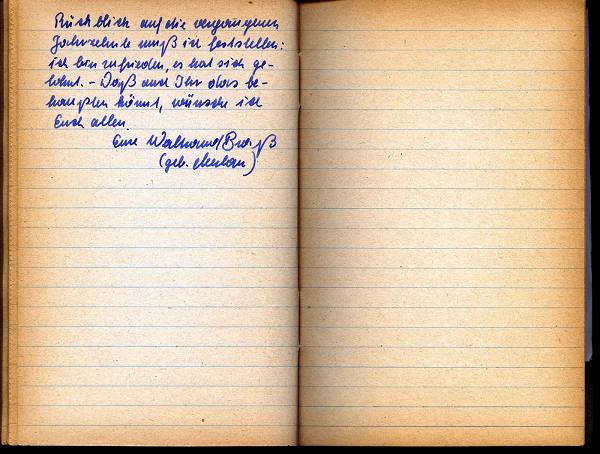 Rückblick auf die vergangenen
Jahrzehnte muß ich feststellen:
ich bin zufrieden, es hat sich ge-
lohnt. – Daß auch Ihr das be-
haupten könnt, wünsche ich
Euch allen.
Eure
(geb.